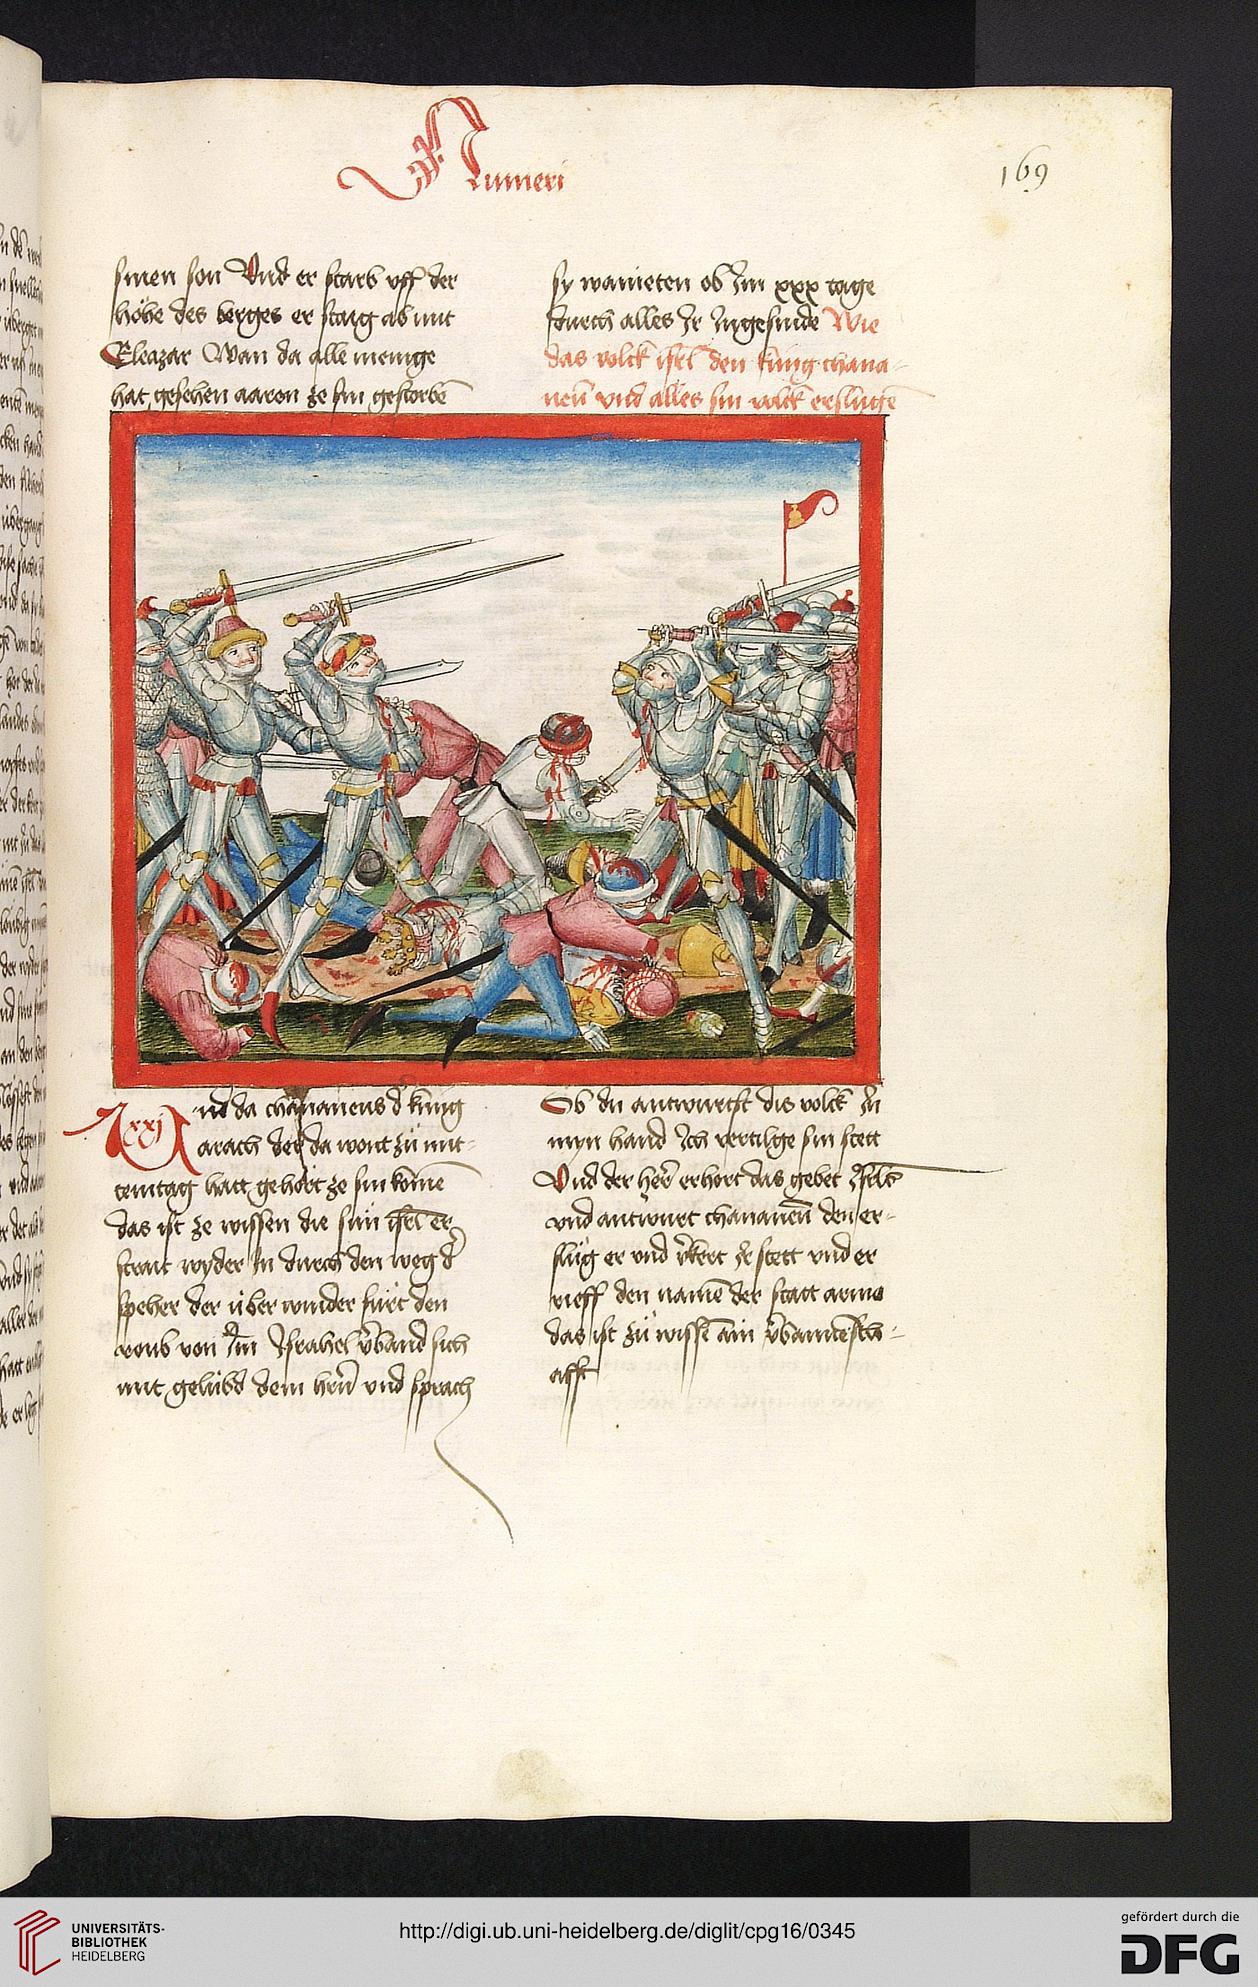 Numeri
169
sinen son Vnd er starb vff der
höhe des berges er staig ab mit
Eleazar Wan da alle menige
hat gesehen aaron ze sin gestorbē
sy waineten ob Im xxx tage
durch alles Ir Ingesinde Wie
das volck isrl den küng chana-
neū vnd alles sin volck erslugē
xxj
Vnd da chananeus d̕ küng
arach der da wont zů mit-
temtag hatt gehört ze sin komē
das ist ze wissen die sün isrl er
strait wyder In durch den weg d̕
speher der überwinder fürt den
roub von Im Israhel v̕band sich
mit gelübd dem hern̄ vnd sprach
Ob du antwurtst dis volck In
myn hand Ich vertilge sin stett
Vnd der her̄ erhort das gebet Isrls
vnd antwurt chananeū den er-
slůg er vnd v̕kert Ir stett vnd er
rieff den namē der statt arma
das ist zů wissē ain v̕bamtesch-
afft
UNIVERSITÄTS-
BIBLIOTHEK
HEIDELBERG
http://digi.ub.uni-heidelberg.de/diglit/cpg16/0345
gefördert durch die
DFG